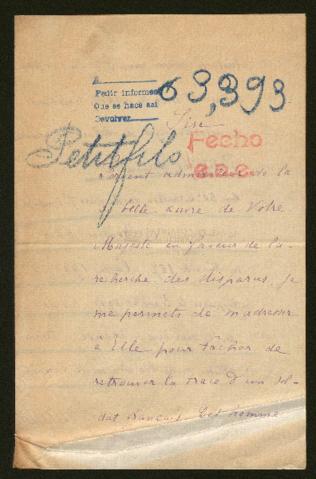 A
63,393
Pedir informes
Que se hace así
Devolver
Sire,
Fecho
Petitfils
de la
belle œuvre de Votre
Majesté en faveur de la
recherche des disparus, je
me permets de m'adresser
à Elle pour tâcher de
retrouver la trace d'un sol-
dat français. Cet homme